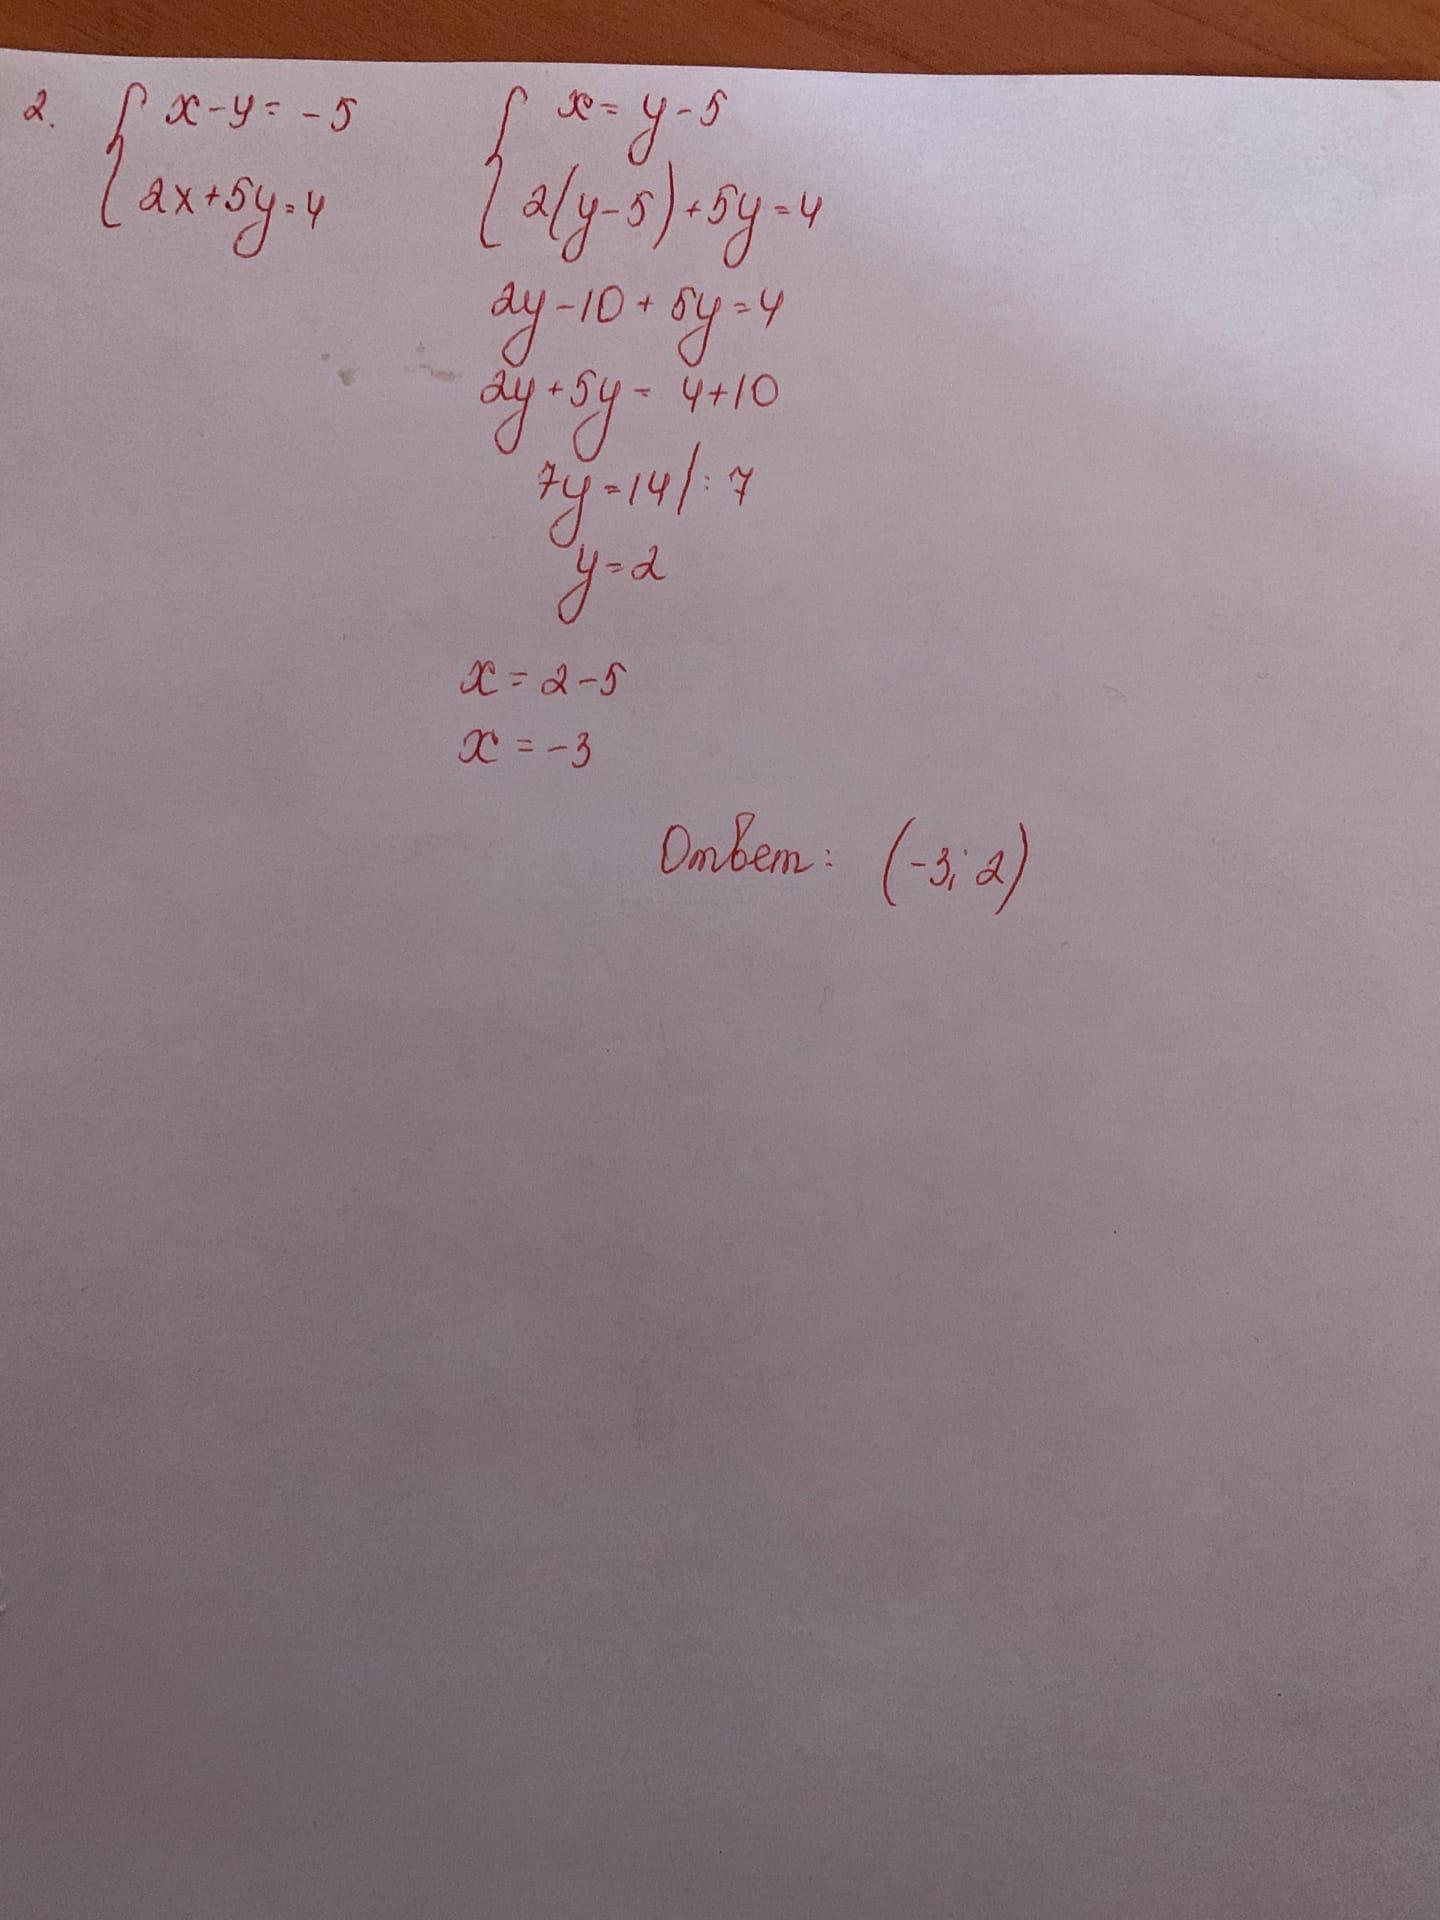 2. { x-y=-5 { x=y-5
2x+5y=4 2(y-5)+5y=4
2y-10+5y=4
2y+5y=4+10
7y=14/:7
y=2
x=2-5
x=-3
Ответ: (-3; 2)